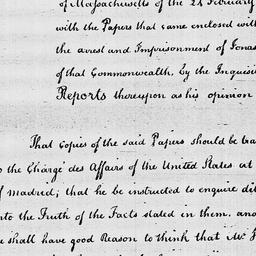 of Massachusetts of the 24 February
with the Papers that came enclosed with
the arrest and Imprisonment of Jonas
of that Commonwealth, by the Inquisi
Reports thereupon as his opinion
That Copies of the said Papers should be tra
the Chargé des Affairs of the United States at
madrid; that he be instructed to enquire di
nto the Truth of the Facts stated in them. and
e shall have good Reason to think that Mr J